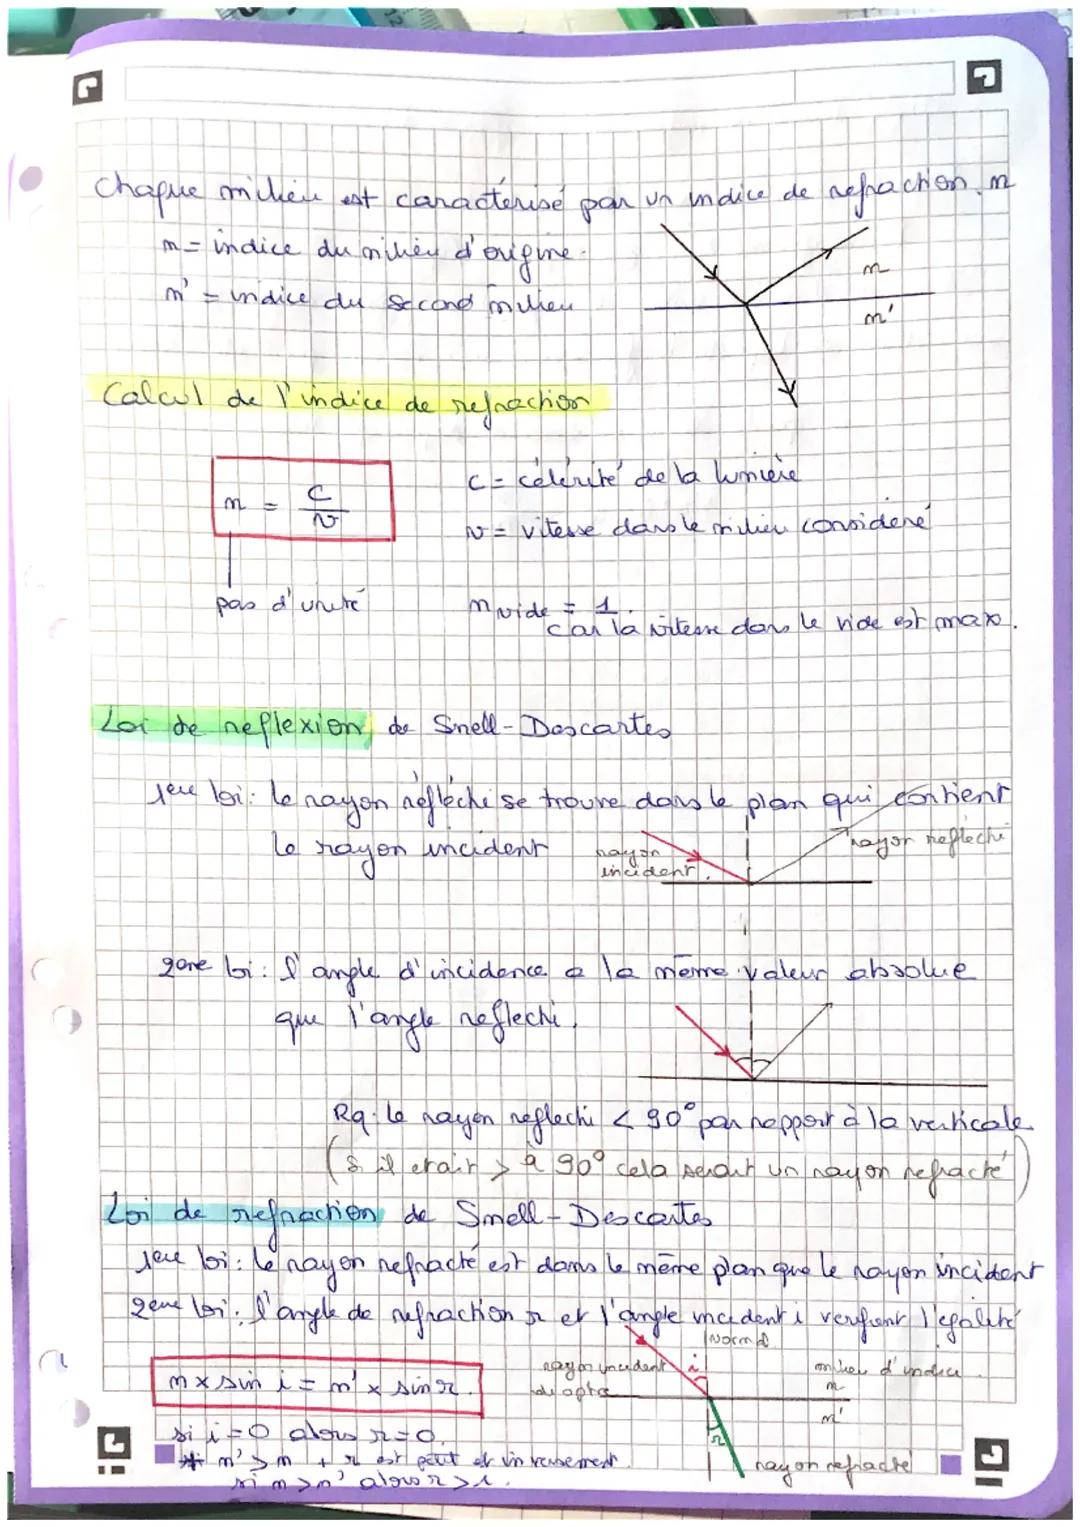 Chaque milieu est caractérisé par un indice de refraction n
n = indice du milieu d'origine.
n' = indice du second milieu
n
n'
Calcul de l'indice de refraction
n = c/v
c = célérité de la lumière
v = vitesse dans le milieu consideré
pas d'unité
n vide = 1.
car la vitesse dans le vide est max.
Loi de reflexion de Snell-Descartes
1ere loi: le rayon réfléchi se trouve dans le plan qui contient
le rayon incident
rayon incident.
rayon reflechi
2eme loi: l'angle d'incidence a la même valeur absolue
que l'angle reflechi.
Rq: le rayon reflechi < 90° par rapport à la verticale
(s'il etait > à 90° cela serait un rayon refracté)
Loi de refraction de Snell-Descartes
1ere loi: le rayon refracté est dans le même plan que le rayon incident
2eme loi: l'angle de refraction r et l'angle incident i verifient l'egalité
n x sin i = n' x sin r.
Normal
rayon incident
i
dioptre
milieu d'indice
n
n'
r
rayon refracté
si i = 0 alors r = 0.
n' > n + r est petit et inversement.
si n > n' alors r > i.